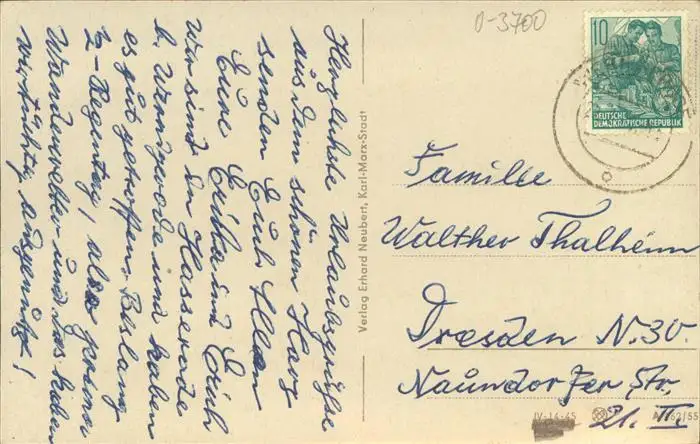 Herzlichste Urlaubsgrüße
aus dem schönen Harz
senden Euch Allen
Eure Erika und Erich
Wir sind in Hasserode
b. Werningerode und haben
es gut getroffen. Bislang
½ Regentag, also prima
Wanderwetter und das haben
wir tüchtig ausgenützt!
Verlag Erhard Neubert, Karl-Marx-Stadt
0-3700
10
DEUTSCHE
DEMOKRATISCHE REPUBLIK
Familie
Walther Thalheim
Dresden N. 30.
Naundorfer Str.
21. II.
IV-14-45
A /62/55